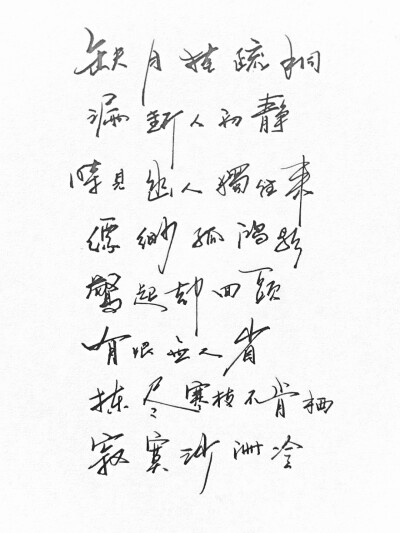 缺月挂疏桐
漏断人初静
時見幽人獨往来
缥缈孤鸿影
驚起却回頭
有恨無人省
拣尽寒枝不肯栖
寂寞沙洲冷